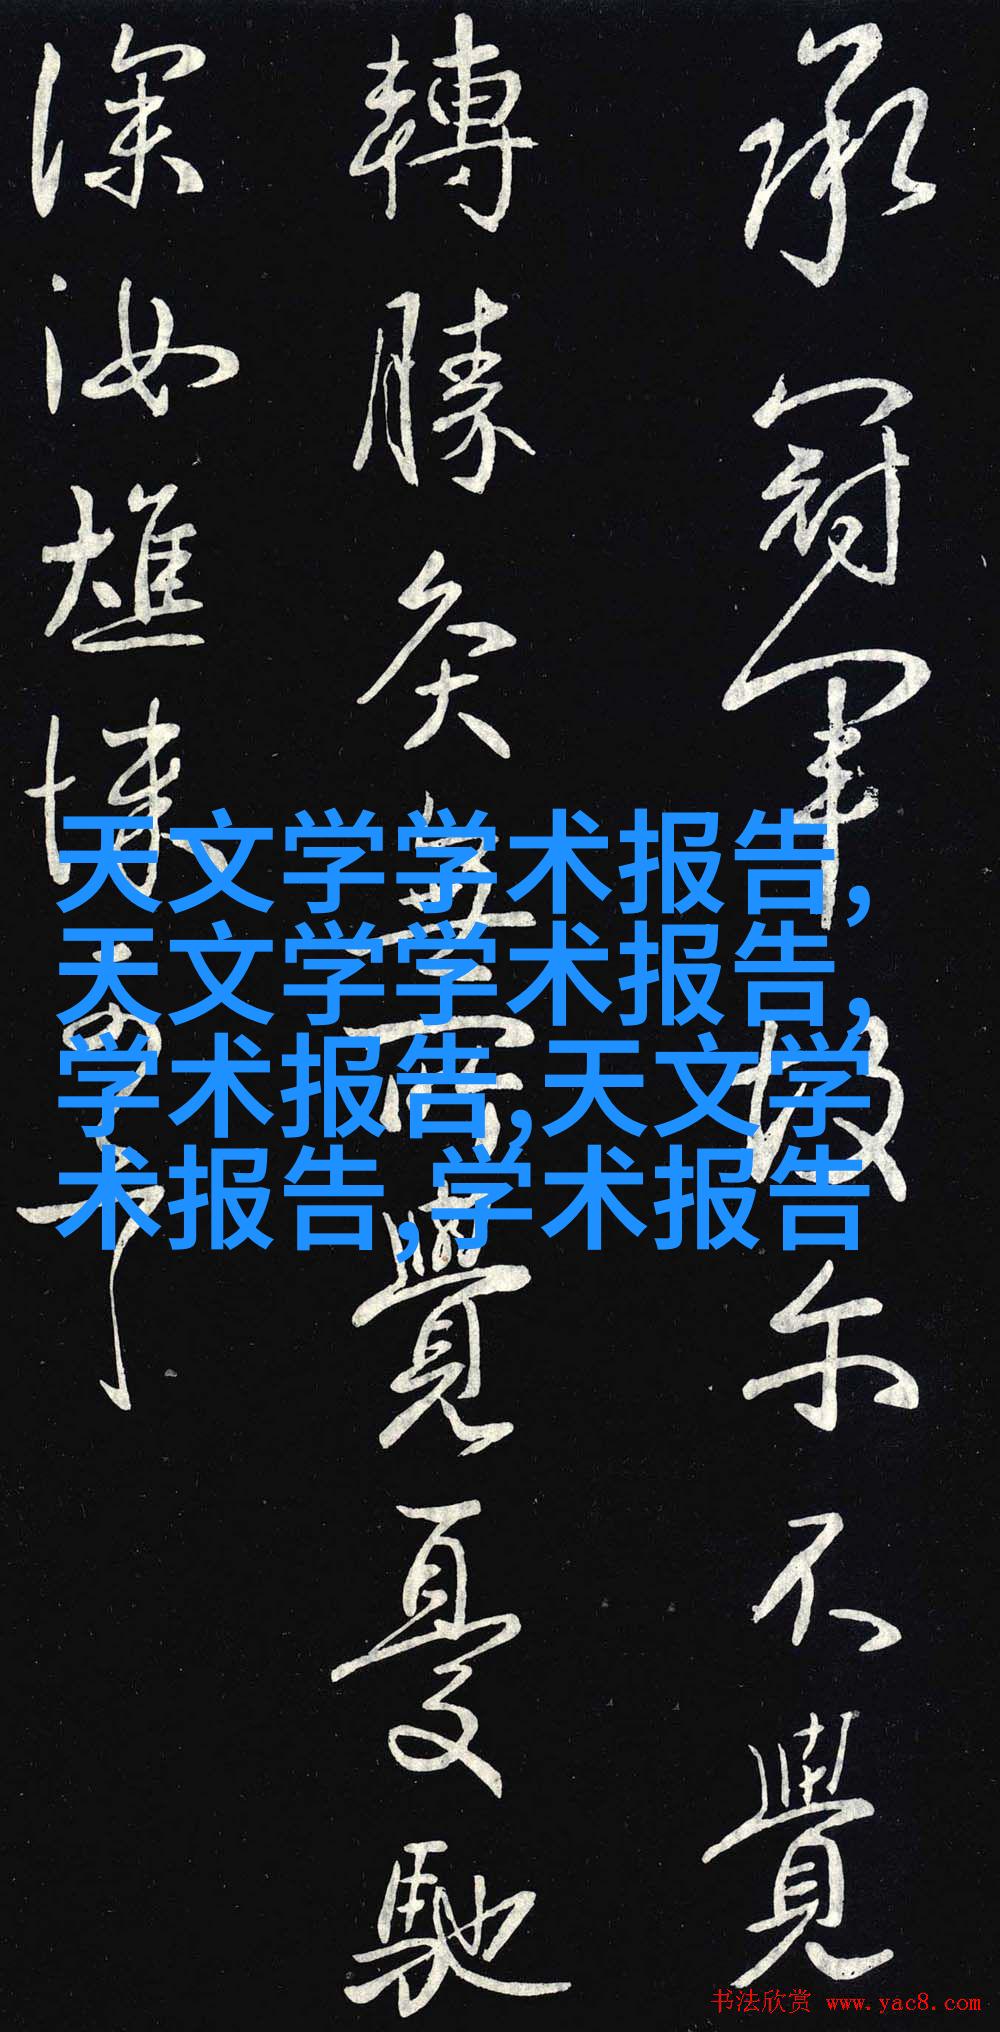 承冠軍故尔不覺
轉勝灸無所覺憂馳
深汝燋悚
天文学学术报告,
天文学学术报告,
学术报告,天文学
术报告,学术报告
书法欣赏 www.yac8.com